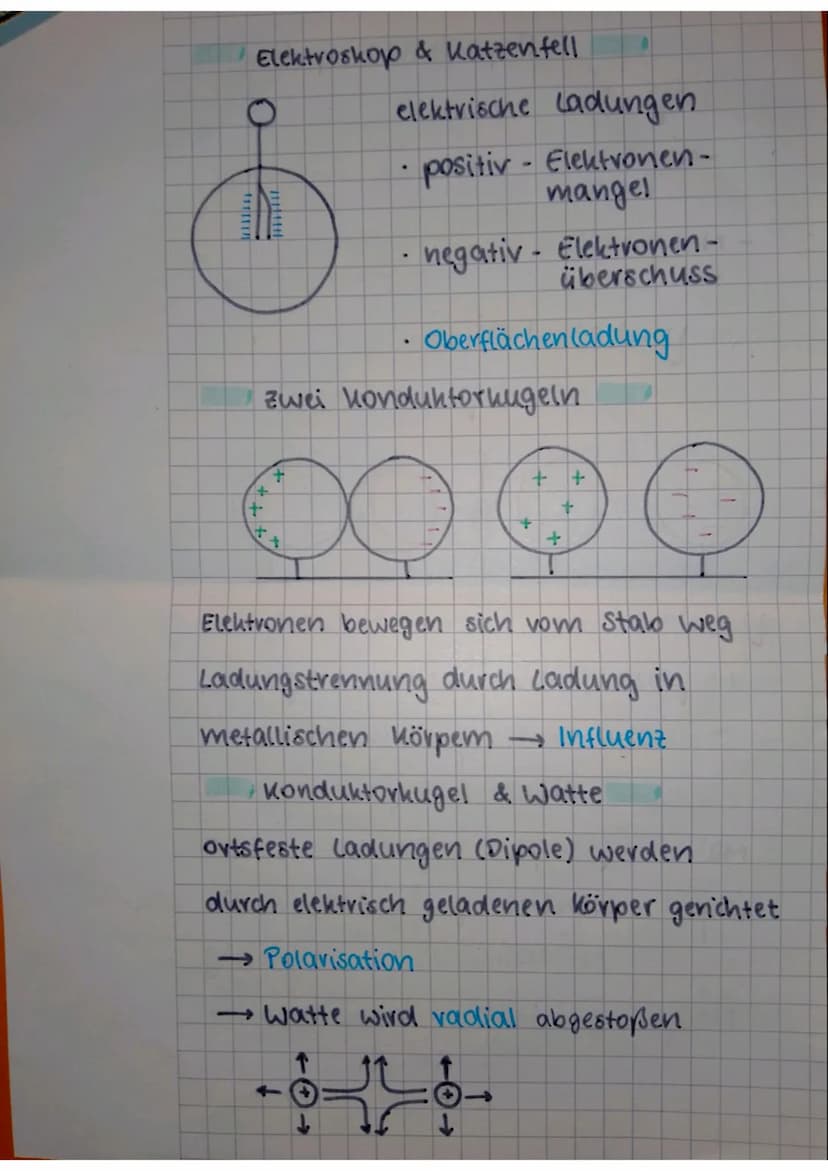 Elektroskop & Katzenfell
elektrische Ladungen
· positiv - Elektronen-
mangel
· negativ - Elektronen-
überschuss
· Oberflächenladung
zwei Konduktorkugeln
+ + + + +
- - - - -
+ + + + +
- - - - -
Elektronen bewegen sich vom Stab weg
Ladungstrennung durch Ladung in
metallischen Körpern → Influenz
Konduktorkugel & Watte
ortsfeste Ladungen (Dipole) werden
durch elektrisch geladenen Körper gerichtet
→ Polarisation
→ Watte wird radial abgestoßen
+ +